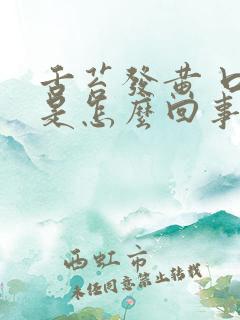 舌苔發黃七
是怎麼回事
西虹市
未经同意禁止转载